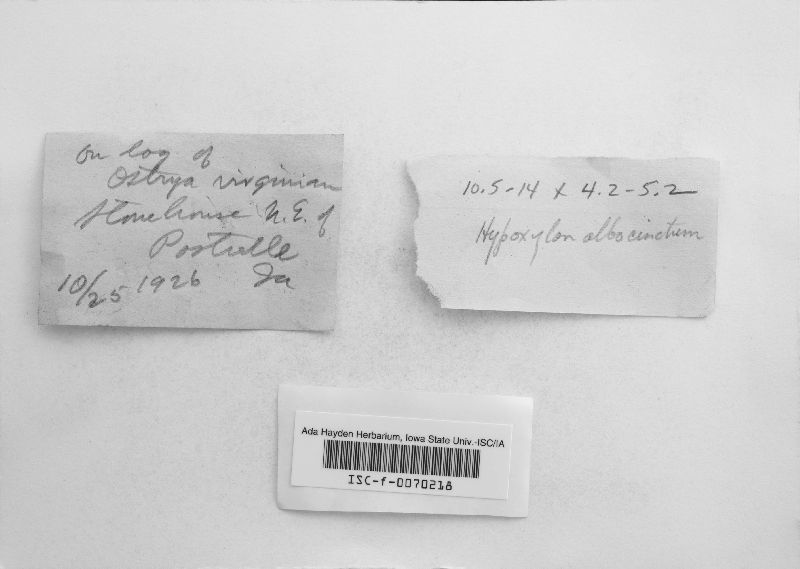 On log of
Ostrya virginian
Stonehouse N.E. of
Postville
10/25 1926 Ia
10.5-14 x 4.2-5.2
Hypoxylon albocinctum
Ada Hayden Herbarium, Iowa State Univ.-ISC/IA
ISC-f-0070218